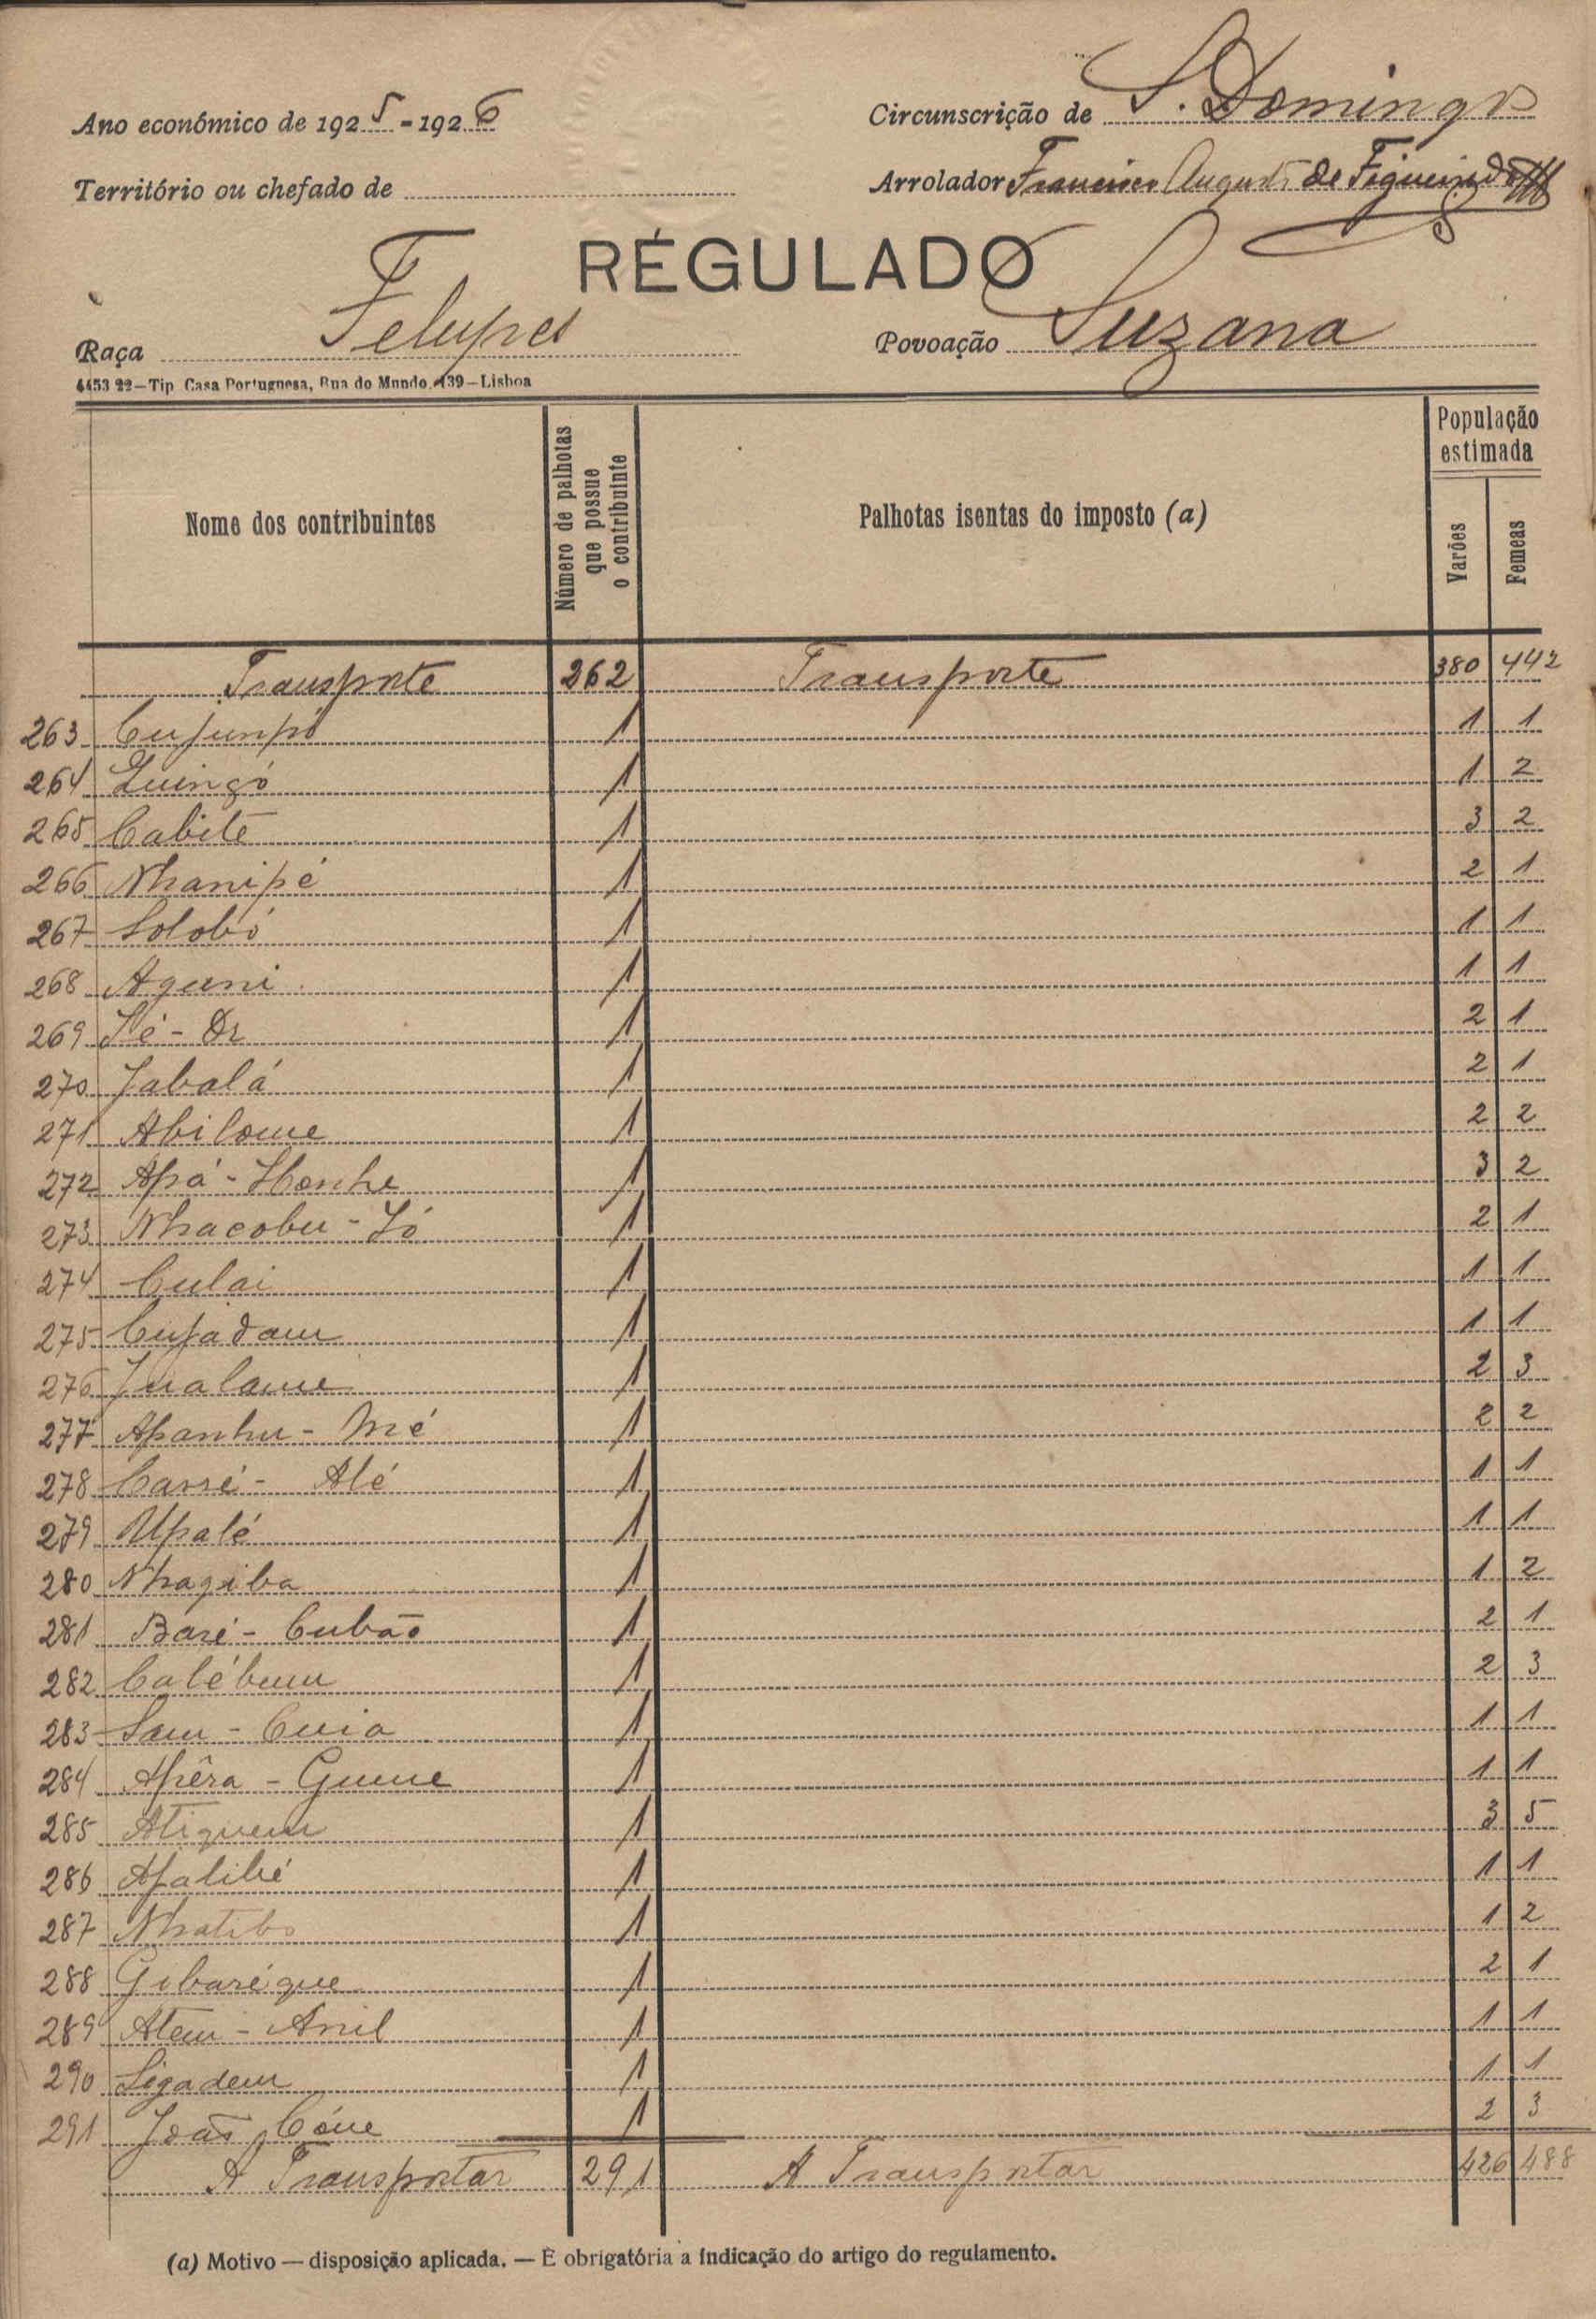 Ano económico de 1925-1926
Circunscrição de S. Domingos
Território ou chefado de
Arrolador Francisco Augusto de Figueiredo
RÉGULADO
Raça Felupes
Povoação Suzana
4453 22—Tip. Casa Portuguesa, Rua do Mundo, 139—Lisboa
Nome dos contribuintes
Número de palhotas que possue o contribuinte
Palhotas isentas do imposto (a)
População estimada
Varões
Femeas
Transporte 262 Transporte 380 442
263 Cujunpó 1 1 1
264 Luingó 1 1 2
265 Cabité 1 3 2
266 Nhanipé 1 2 1
267 Solobó 1 1 1
268 Aguni 1 1 1
269 1 2 1
270 Jabalá 1 2 1
271 Abilome 1 2 2
272 Apá- 1 3 2
273 Nhacobu-Só 1 2 1
274 Culai 1 1 1
275 Cujadam 1 1 1
276 Jualame 1 2 3
277 Apanhu-Mé 1 2 2
278 Carré-Alé 1 1 1
279 Upalé 1 1 1
280 Nhagiba 1 1 2
281 Baré-Cubão 1 2 1
282 Calébum 1 2 3
283 Sam-Cuia 1 1 1
284 Apêra-Gueue 1 1 1
285 Atiquem 1 3 5
286 Apalibé 1 1 1
287 Nhatibo 1 1 2
288 Gibaréque 1 2 1
289 Atem-Anil 1 1 1
290 Sigadem 1 1 1
291 João Cóue 1 2 3
A Transportar 291 A Transportar 426 488
(a) Motivo — disposição aplicada. — É obrigatória a indicação do artigo do regulamento.